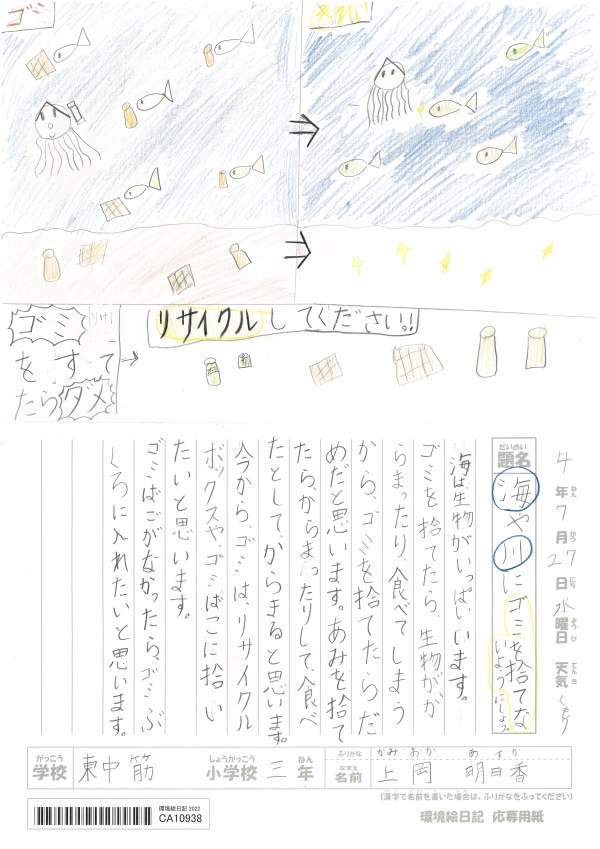 ゴミ
きれい
ゴミ
をすて
たらダメ
リサイクルしてください!!
4年7月27日水曜日 天気くもり
ねん がつ にち ようび てんき
だいめい
題名
海や川にゴミを捨てないようにしよう。
海は生物がいっぱいいます。
ゴミを捨てたら、生物がか
らまったり、食べてしまう
から、ゴミを捨てたらだ
めだと思います。あみを捨て
たら、からまったりして、食べ
たとして、からまると思います。
今から、ゴミは、リサイクル
ボックスや、ゴミばこに捨い
たいと思います。
ゴミばこがなかったら、ゴミぶ
くろに入れたいと思います。
がっこう しょうがっこう ねん
学校 東中筋 小学校 三年
ふりがな かみおか あすか
なまえ
名前 上岡 明日香
(漢字で名前を書いた場合は、ふりがなをふってください)
環境絵日記 2022
CA10938
環境絵日記 応募用紙